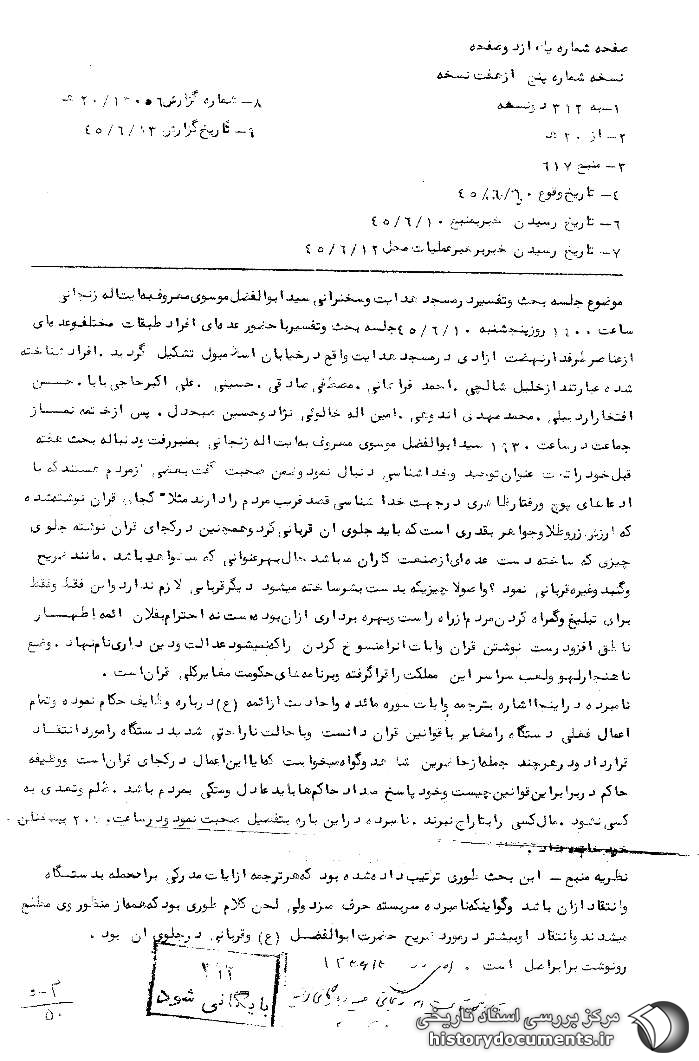 صفحه شماره یک از دو صفحه
نسخه شماره پنج از هفت نسخه
۱- به ۳۱۲ دو نسخه
۲- از ۲۰ هـ
۳- منبع ۶۱۷
۴- تاریخ وقوع ۴۵/۶/۱۰
۶- تاریخ رسیدن خبر بمنبع ۴۵/۶/۱۰
۷- تاریخ رسیدن خبر برهبر عملیات محل ۴۵/۶/۱۲
۸- شماره گزارش ۲۰/۱۳۰۵۶ هـ
۹- تاریخ گزارش ۴۵/۶/۱۳
موضوع جلسه بحث و تفسیر در مسجد هدایت و سخنرانی سید ابوالفضل موسوی معروف به ایت اله زنجانی
ساعت روز پنجشنبه ۴۵/۶/۱۰ جلسه بحث و تفسیر با حضور عده‌ای افراد طبقات مختلف و عده‌ای
از عناصر طرفدار نهضت ازادی در مسجد هدایت واقع در خیابان اسلامبول تشکیل گردید . افراد شناخته
شده عبارتند از خلیل شالچی . احمد . مصطفی صادقی . حسینی . علی اکبر حاجی بابا . حسن
افتخار اردبیلی . محمد مهدی . امین اله خالوئی نژاد و حسین صبحدل . پس از خاتمه نماز
جماعت در ساعت سید ابوالفضل موسوی معروف به ایت اله زنجانی بمنبر رفت و دنباله بحث هفته
قبل خود را تحت عنوان توحید و خدا شناسی دنبال نمود و ضمن صحبت گفت بعضی از مردم هستند که با
ادعاهای پوچ و رفتار ظاهری در جهت خدا شناسی قصد فریب مردم را دارند مثلا" کجای قران نوشته شده
که ارزش زر و طلا و جواهر بقدری است که باید جلوی ان قربانی کرد و همچنین در کجای قران نوشته جلوی
چیزی که ساخته دست عده‌ای از صنعت کاران میباشد حال بهر عنوانی که میخواهد باشد . مانند ضریح
و گنبد و غیره قربانی نمود ؟ و اصولا چیزیکه بدست بشر ساخته میشود دیگر قربانی لازم ندارد و این فقط و فقط
برای تبلیغ و گمراه کردن مردم از راه راست و بهره برداری از ان بوده است نه احترام بفلان ائمه اطهار
ناطق افزود درست نوشتن قران و ایات انرا منسوخ کردن را که نمیشود عدالت و دین داری نام نهاد . وضع
ناهنجار لهو و لعب سراسر این مملکت را فرا گرفته و برنامه‌های حکومت مغایر کلی قران است .
نامبرده در اینجا اشاره بترجمه و ایات سوره مائده و احادیث از ائمه (ع) درباره وظایف حکام نموده و تمام
اعمال فعلی دستگاه را مغایر با قوانین قران دانست و با حالت ناراحتی شدید دستگاه را مورد انتقاد
قرار داد و در هر چند جمله از حاضرین شاهد و گواه میخواست که ایا این اعمال در کجای قران است و وظیفه
حاکم در برابر این قوانین چیست و خود پاسخ میداد حاکم‌ها باید عادل و متکی بمردم باشد . ظلم و تعدی به
کسی نشود . مال کسی را بتاراج نبرند . نامبرده در این باره بتفصیل صحبت نمود و در ساعت بسخنان
خود خاتمه داد .
نظریه منبع - این بحث طوری ترتیب داده شده بود که هر ترجمه از ایات مدرکی برا حمله بدستگاه
و انتقاد از ان باشد و گو اینکه نامبرده سربسته حرف میزد ولی لحن کلام طوری بود که همه از منظور وی مطلع
میشدند و انتقاد او بیشتر در مورد ضریح حضرت ابوالفضل (ع) و قربانی در جلوی ان بود .
رونوشت برابر اصل است .
۳۱۲
بایگانی شود
مرکز بررسی اسناد تاریخی
historydocuments.ir